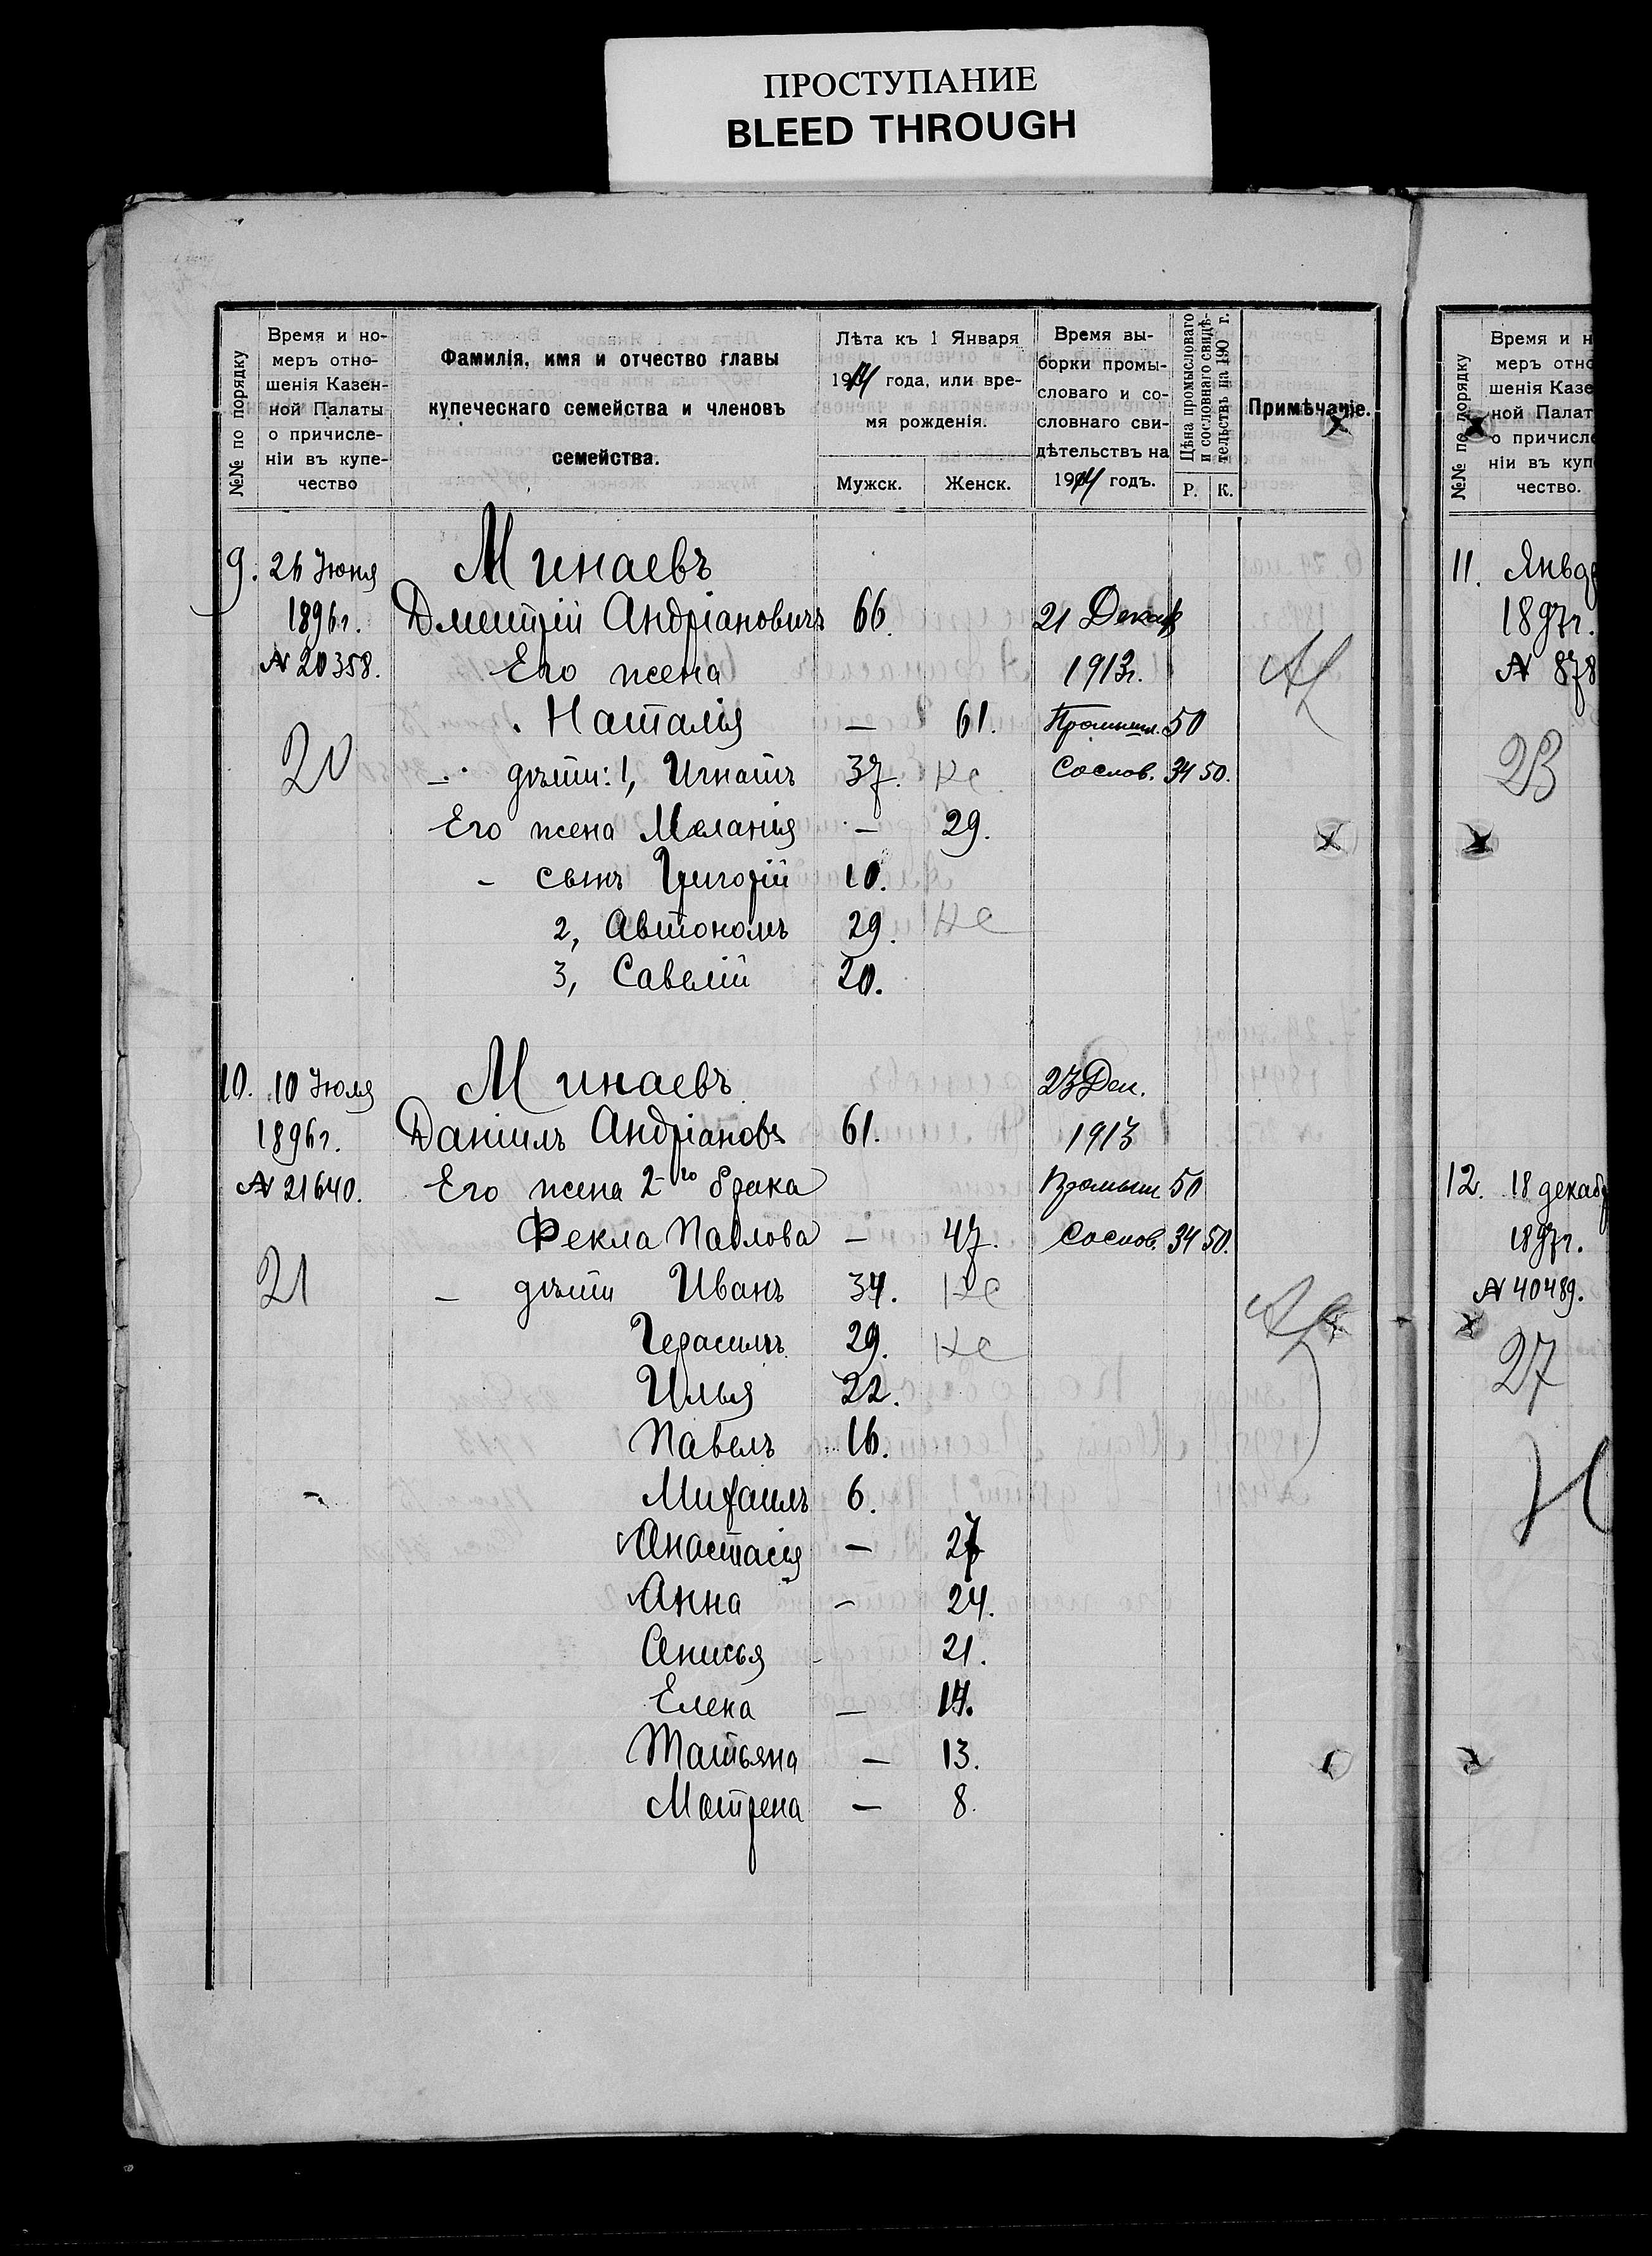 ПРОСТУПАНИЕ
BLEED THROUGH
№№ по порядку
Время и но-
меръ отно-
шенія Казен-
ной Палаты
о причисле-
ніи въ купе-
чество
Фамилія, имя и отчество главы
купеческаго семейства и членовъ
семейства.
Лѣта къ 1 Января
1914 года, или вре-
мя рожденія.
Мужск. Женск.
Время вы-
борки промы-
словаго и со-
словнаго сви-
дѣтельствъ на
1914 годъ.
Цѣна промысловаго
и сословнаго свидѣ-
тельствъ на 190 г.
Р. К.
Примѣчаніе.
9. 26 Іюня Минаевъ
1896 г. Дмитрій Андріановичъ 66. 21 Декаб
№ 20358. Его жена 1913 г.
Наталія — 61. Промышл. 50
20 — дѣти: 1, Игнатъ 37. Не Сослов. 34 50.
Его жена Меланія — 29.
- сынъ Григорій 10.
2, Автономъ 29. Не
3, Савелій 20.
10. 10 Іюля Минаевъ 23 Дек.
1896 г. Даніилъ Андріановъ 61. 1913
№ 21640. Его жена 2-го брака Промышл 50
Фекла Павлова — 47. Сослов. 34 50.
21 — дѣти Иванъ 34. Не
Герасимъ 29. Не
Илья 22.
Павелъ 16.
Михаилъ 6.
Анастасія — 27
Анна — 24.
Анисья - 21.
Елена — 17.
Татьяна — 13.
Матрена — 8.
№№ по порядку
Время и н
меръ отно
шенія Казе
ной Палат
о причисле
ніи въ куп
чество.
11. Январ
1897 г.
№ 878
23
12. 18 декаб
1897 г.
№ 40489.
27